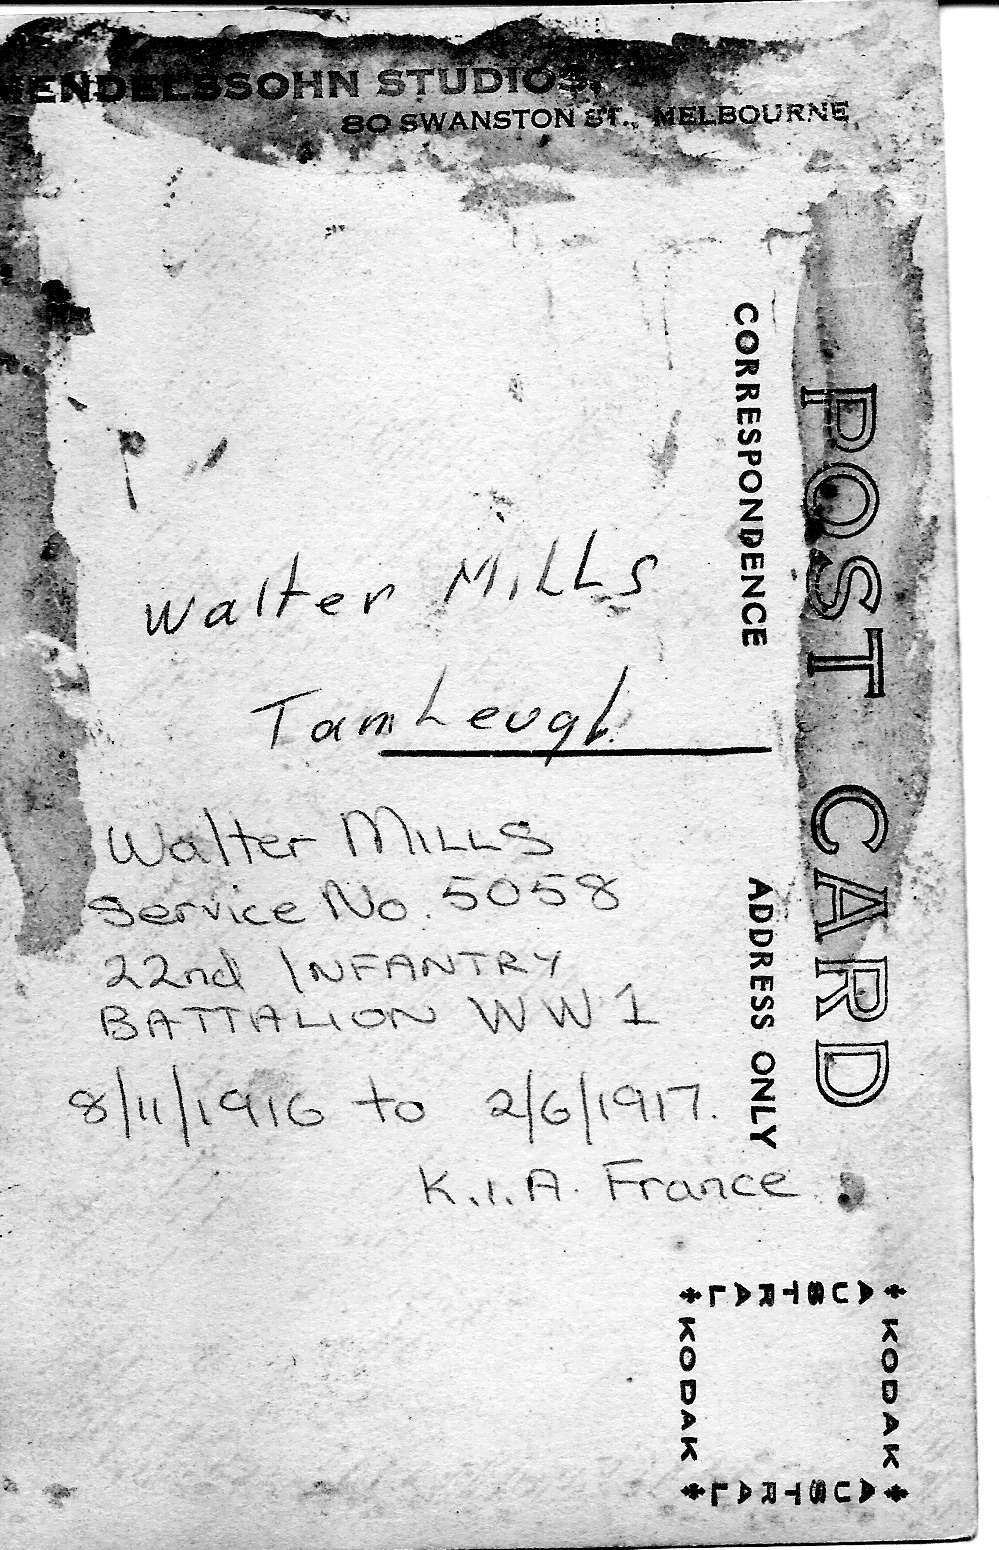 MENDELSSOHN STUDIOS,
80 SWANSTON ST., MELBOURNE
POST CARD
CORRESPONDENCE
ADDRESS ONLY
Walter MILLS
Tamleugh
Walter MILLS
Service No. 5058
22nd INFANTRY
BATTALION WW1
8/11/1916 to 2/6/1917.
K.I.A. France
AUSTRAL
KODAK
KODAK
AUSTRAL